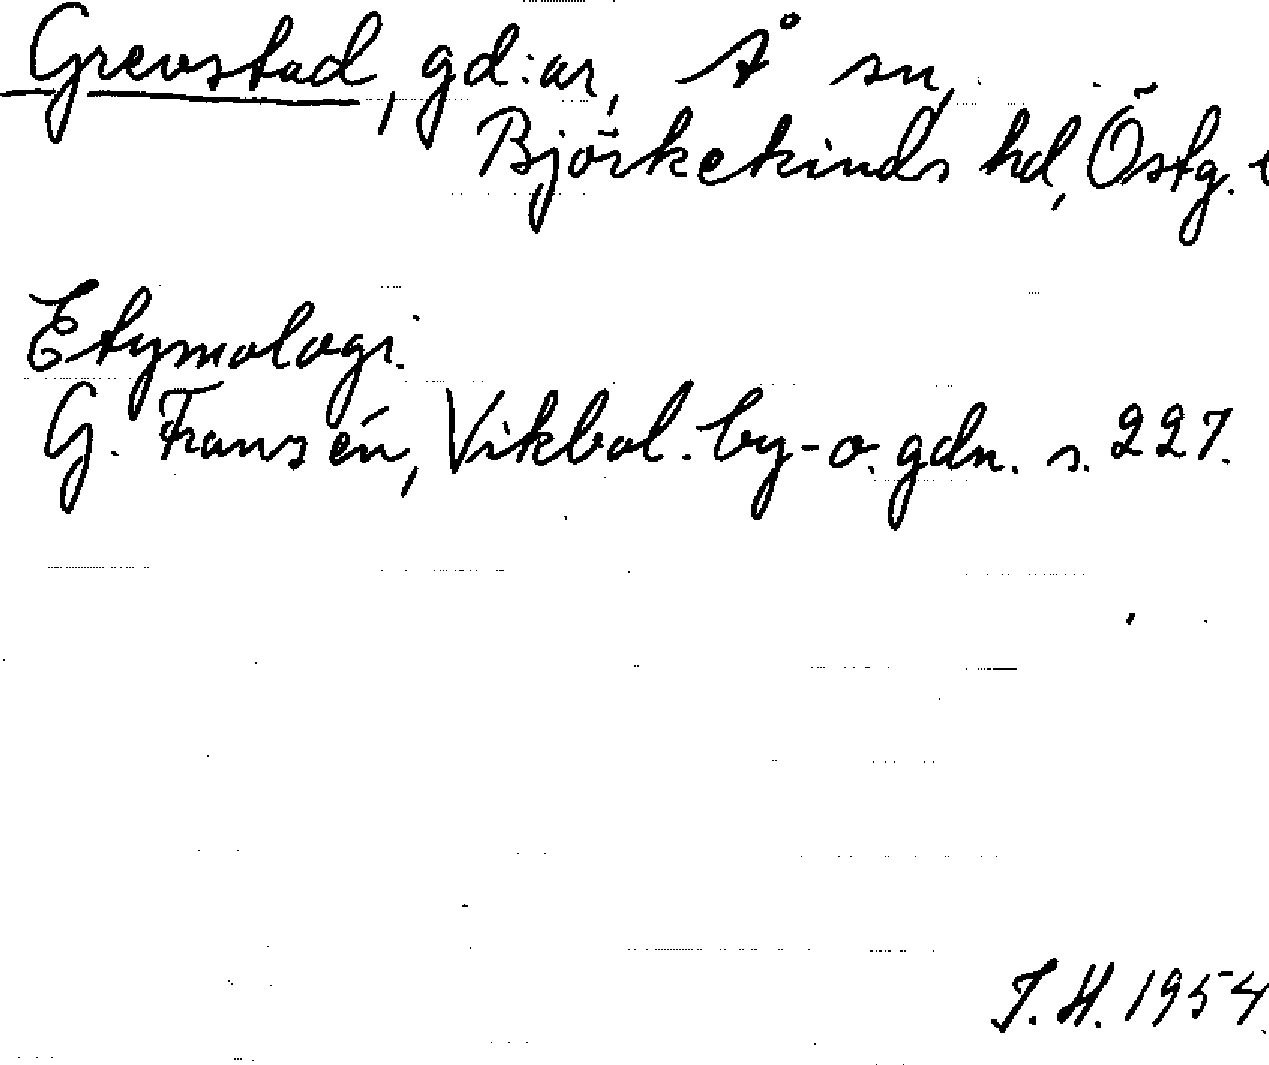 Grevstad, gd:ar, Å sn,
Björkekinds hd, Östg. l
Etymologi.
G. Fransén, Vikbol. by- o. gdn. s. 227.
J.H. 1954